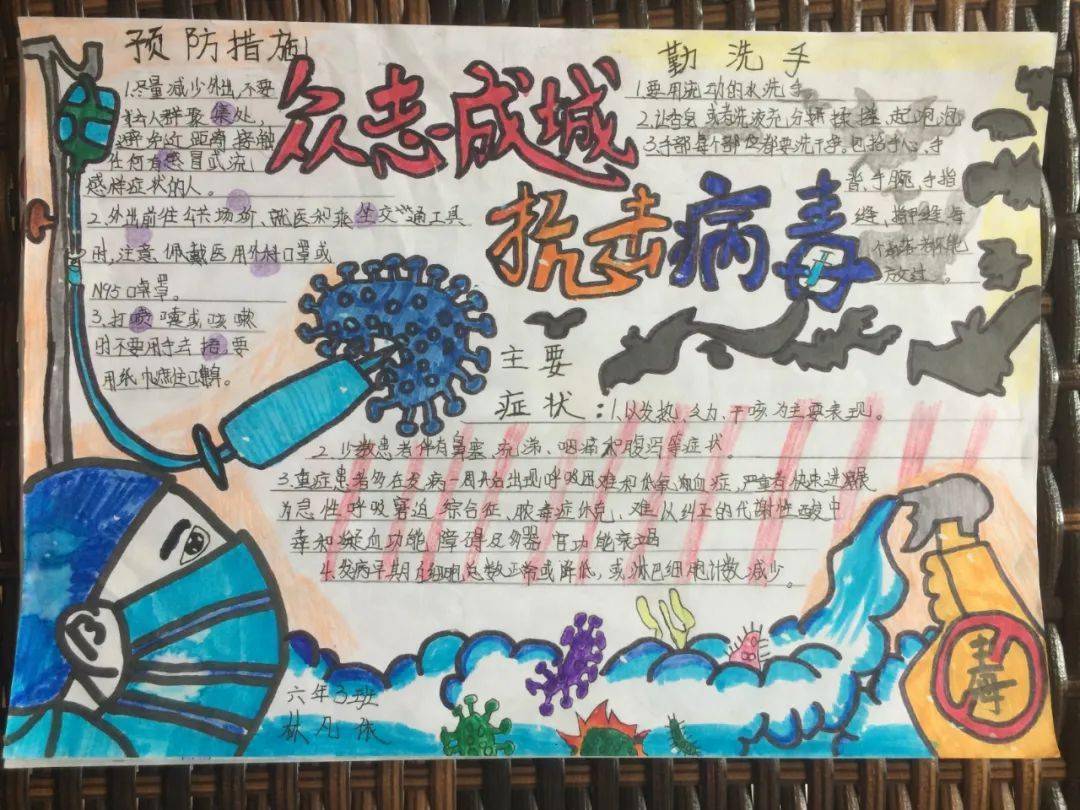 预防措施
1.尽量减少外出,不要
往人群聚集处,
避免近距离接触
任何有感冒或流
感样症状的人。
2.外出前往公共场所、就医和乘坐交通工具
时,注意佩戴医用外科口罩或
N95口罩。
3.打喷嚏或咳嗽
时不要用手去捂,要
用纸巾遮住口鼻。
众志成城
抗击病毒
勤洗手
1.要用流动的水洗手
2.让香皂或者洗液充分搓揉搓起泡泡
3.手部每个部位都要洗干净,包括手心、手
背、手腕、手指
缝、指甲缝等
放过。
主要
症状:1.以发热、乏力、干咳为主要表现。
2.少数患者伴有鼻塞、流涕、咽痛和腹泻等症状。
3.重症患者多在发病一周后出现呼吸困难和低氧血症,严重者快速进展
为急性呼吸窘迫综合征、脓毒症休克、难以纠正的代谢性酸中
毒和凝血功能障碍及多器官功能衰竭
4.发病早期白细胞总数正常或降低,或淋巴细胞计数减少。
六年3班
林凡依
毒